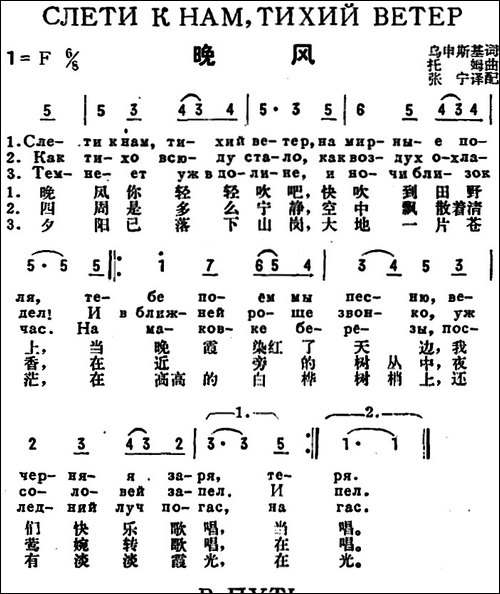 СЛЕТИ К НАМ, ТИХИЙ ВЕТЕР
晚 风
乌申斯基词
1=F 6/8
托 姆曲
张 宁译配
5 | 5 3 4 3 4 | 5·3 5 | 6 5 4 3 4 |
1.Сле-ти к нам, ти-хий ве-тер, на мир-ны-е по-
2. Как ти-хо всю-ду ста-ло, как воз-дух о-хла-
3.Тем-не-ет уж в до-ли-не, и но-чи бли-зок
1. 晚 风 你 轻 轻 吹 吧, 快 吹 到 田 野
2. 四 周 是 多 么 宁 静, 空 中 飘 散着 清
3. 夕 阳 已 落 下 山 岗, 大 地 一 片 苍
5·5 5 :| i 7 6 5 4 | 3 4 5 3 |
ля, те-бе по-ём мы пес-ню, ве-
дел! И в ближ-ней ро-ше звон-ко, уж
час. На ма-ков-ке бе-ре-зы, пос-
上, 当 晚 霞 染红 了 天 边, 我
香, 在 近 旁 的 树 丛 中, 夜
茫, 在 高高 的 白 桦 树 梢 上, 还
1. 2.
2 3 4 3 2 | 3·3 5 :| 1·1 ||
чер-ня-я за-ря, те-ря.
со-ло-вей за-пел. И пел.
лед-ний луч по-гас, на гас.
们 快 乐 歌 唱, 当 唱。
莺 婉 转 歌 唱, 在 唱。
有 淡 淡 霞 光, 在 光。